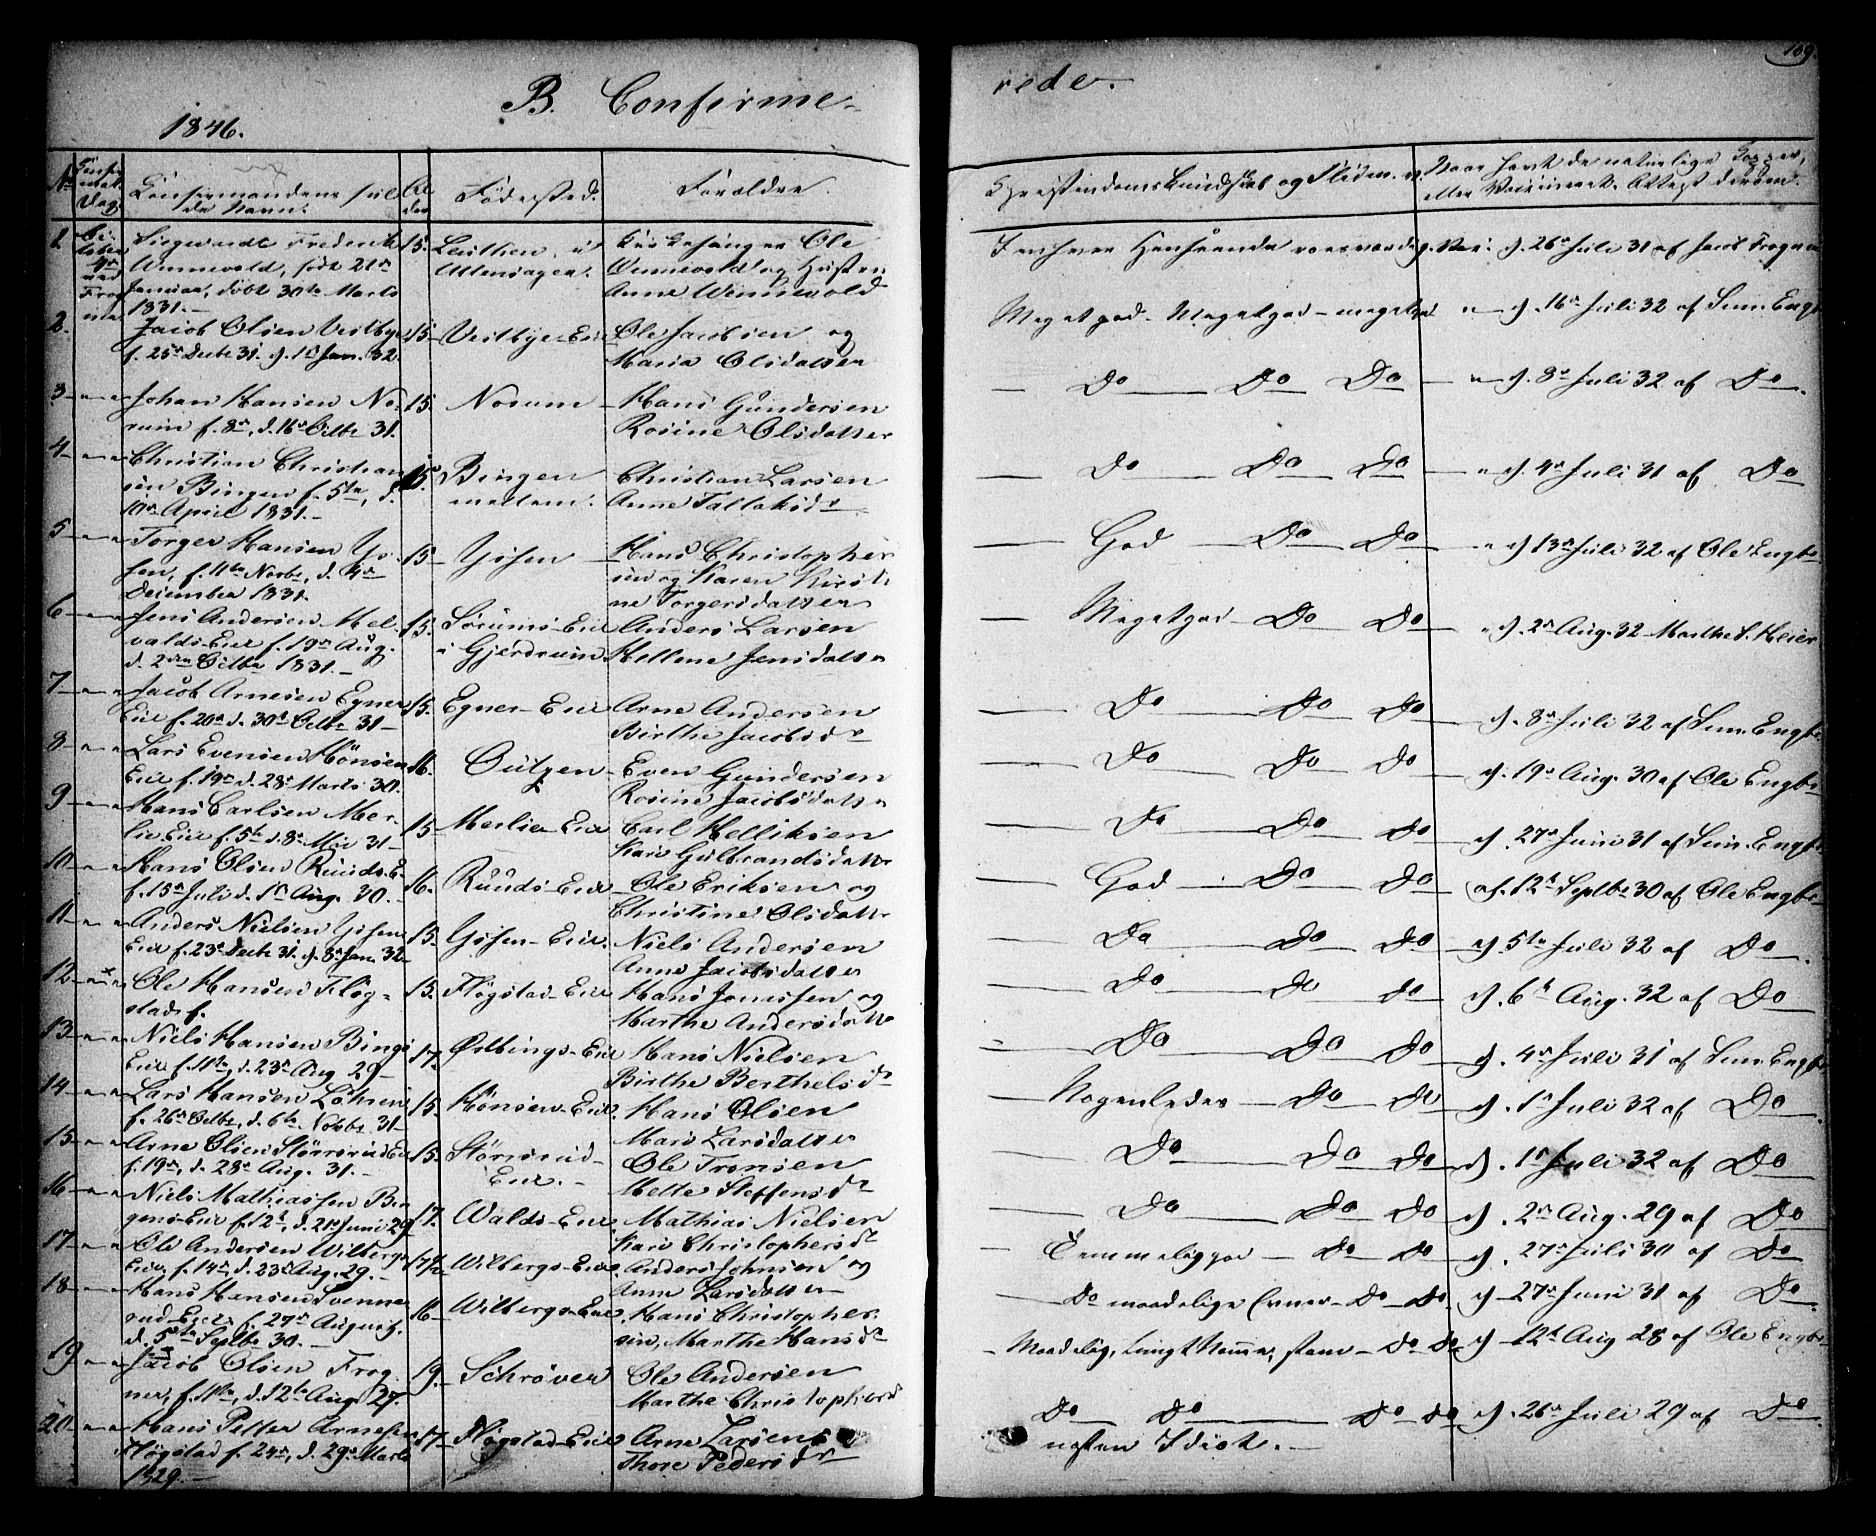 109.
B. Confirme-
rede.
1846.
No
Confirmandens ful-
de Navn.
Al-
der
Fødested.
Forældre.
Christendomskundskab og Fliden.
Naar havt de naturlige Kopper,
eller Vaccineret. Attest derom.
1
October
4de
ved
Frog-
ner
Siegwardt Frederik
Wennevold, født 21de
Januar, døbt 30te Marts
1831.-
15.
Ullensager.
Ole
Wennevold og Hustru
Anne Wennevold
v. d. 26de Juli 31 af Jacob Frogner
2.
Jacob Olsen Vestbye
f. 25de Decbr 31. d. 1ste Jan. 32.
15
Vestbye-Eie
Ole Jacobsen og
Maria Olsdatter
Megetgod - Megetgod - megetgod
" d. 16de Juli 32 af Sim. Engb
3 - " - "
Johan Hansen No-
rum f. 8de, d. 16de Octbr 31.
15.
Norum
Hans Gundersen
Rosine Olsdatter
Do Do Do
" d. 8de Juli 32 af Do.
4 - " - "
Christian Christian-
sen Bingen f. 5te, d.
10de April 1831.-
15.
Bingen
mellem.
Christian Larsen
Anne Tollaksdr
Do Do Do
" d. 4de Juli 31 af Do
5 - " - "
Torger Hansen Js-
sen, f. 11te Novbr, d. 4de
December 1831.
15
Hans Christopher-
sen og Karen Kirsti-
ne Torgersdatter
God Do Do
" d 13de Juli 32 af Ole Engbr
6 - " - "
Jens Andersen Mel-
valds-Eie f. 19de Aug.
d. 2den Octbr 1831.-
15.
Sørums-Eie
i Gjerdrum.
Anders Larsen
Hellene Jensdatter
Megetgod - Do Do
" d. 2de Aug. 32 Marthe S. Heier
7 - " - "
Jacob Arnesen Egner
Eie f. 20de d. 30te Octbr 31-
15.
Egner-Eie
Arne Andersen
Birthe Jacobsdr
Do Do Do
d. 8de Juli 32 af Sim. Engbr
8 - " - "
Lars Evensen Hønsen
Eie f. 19de d. 28de Marts 30.
16.
Even Gundersen
Rosine Jacobsdatter
Do Do Do
d. 19de Aug. 30 af Ole Engbr
9 - " - "
Hans Carlsen Mer-
lie Eie f. 5te d. 8de Mai 31-
15
Merlie-Eie
Carl Helliksen
Kari Gulbrandsdatter
Do Do Do
d. 27de Juni 31 af Sim. Engbr
10 - " - "
Hans Olsen Ruuds-E.
f. 15de Juli d. 1ste Aug. 30.-
16.
Ruuds-Eie
Ole Eriksen og
Christine Olsdatter
God - Do Do
d. 12te Septbr 30 af Ole Engbr
11 - " - "
Anders Nielsen
Eie f. 23de Decbr 31. d. 8de Jan. 32-
15.
Niels Andersen
Anne Jacobsdatter
Do Do Do
d. 5te Juli 32 af Do.
12 - " - "
Ole Hansen Fløg-
stad f.
15.
Fløgstad-Eie
Hans Jonassen og
Marthe Andersdatter
Do Do Do
d. 6te Aug. 32 af Do
13 - " - "
Niels Hansen Bings
Eie f. 11te, d. 23de Aug 29-
17.
Østbings-Eie
Hans Nielsen
Birthe Berthelsdr
Do Do Do
d. 4de Juli 31 af Sim. Engbr
14 - " - "
Lars Hansen
f. 26de Octbr, d. 6te Novbr 31-
15.
Hønsen-Eie
Hans Olsen
Mari Larsdatter
Nogenledes - Do Do
d. 1ste Juli 32 af Do
15 - " - "
Arne Olsen Størsrud Eie
f. 19de, d. 28de Aug. 31.-
15.
Størsrud-
Eie.-
Ole Tronsen
Mette Steffensdr
Do Do Do
d. 1ste Juli 32 af Do
16 - " - "
Niels Mathiassen Bin-
gens-Eie f. 12te, d. 21de Juni 29
17.
Walds-Eie
Mathias Nielsen
Kari Christophersdr
Do Do Do
d. 2de Aug. 29 af Do
17 - " - "
Ole Andersen Wilbergs
Eie, f. 14de, d. 23de Aug. 29.-
17½
Wilbergs-Eie
Anders Johnsen og
Anne Larsdatter
Temmeliggod - Do Do
d. 27de Juli 30 af Do
18 - " - "
Hans Hansen Svenne-
rud-Eie f. 27de August,
d. 5te Septbr 30.-
16
Wilbergs-Eie
Hans Christopher-
sen, Marthe Hansdr
Do maadelige Evner - Do - Do
d. 27de Juni 31 af Do.
19 - " - "
Jacob Olsen Frog-
ner, f. 1ste, d. 12te Aug. 27.
19.
Schrøver
Ole Andersen
Marthe Christophersd
Maadelig, - Do Do
d. 12te Aug 28 af Ole Engbr
20 - " - "
Hans Petter Arnesen
Fløgstad f. 24de, d. 29de Marts
1829.-
17
Fløgstad-Eie
Arne Larsen
Thore Pedersdr
Do Do Do Do
næsten Idiot.-
d. 26de Juli 29 af Do.